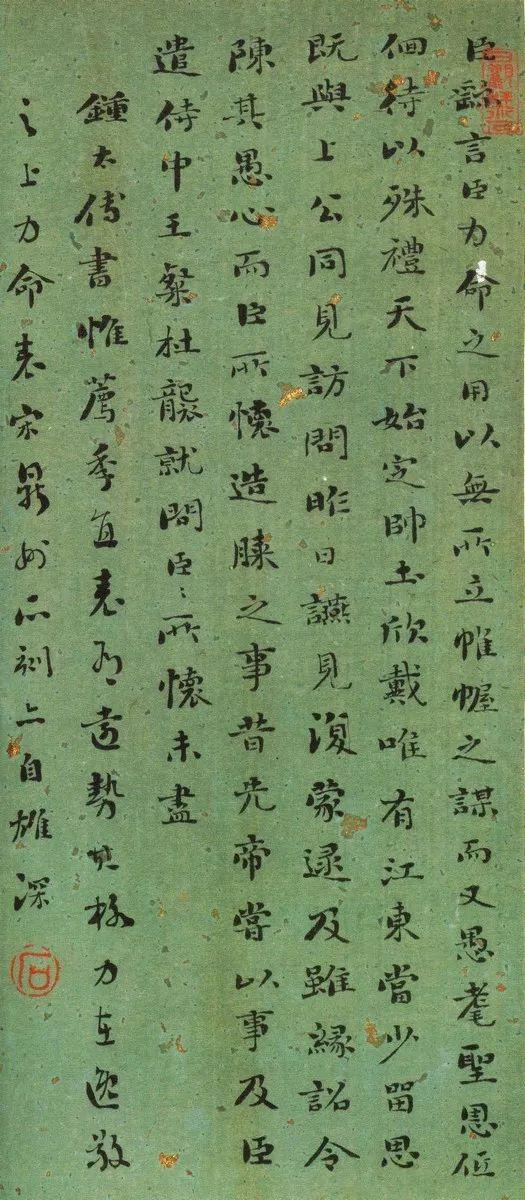 臣繇言臣力命之用以無所立帷幄之謀而又愚耄聖恩低
佪待以殊禮天下始定帥土欣戴唯有江東當少留思
既與上公同見訪問昨日讌見復蒙逮及雖緣詔令
陳其愚心而臣所懷造膝之事昔先帝嘗以事及臣
遣侍中王粲杜襲就問臣〻所懷未盡
鍾太傅書惟薦季直表有遺勢其極力在逸教
之上力命表宋鼎州石刻亦自雄深